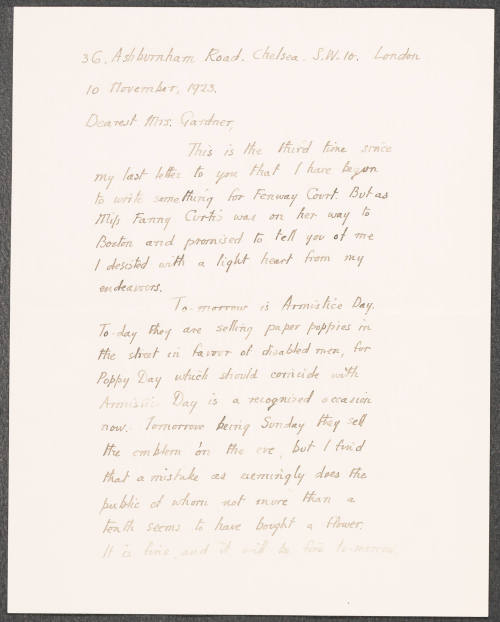 36. Ashburnham Road. Chelsea. S.W. 10. London
10 November, 1923.
Dearest Mrs. Gardner,
This is the third time since
my last letter to you that I have begun
to write something for Fenway Court. But as
Miss Fanny Curtis was on her way to
Boston and promised to tell you of me
I desisted with a light heart from my
endeavours.
To-morrow is Armistice Day.
To-day they are selling paper poppies in
the street in favour of disabled men, for
Poppy Day which should coincide with
Armistice Day is a recognised occasion
now. Tomorrow being Sunday they sell
the emblem on the eve, but I find
that a mistake as seemingly does the
public of whom not more than a
tenth seems to have bought a flower.
It is fine and it will be fine to-morrow